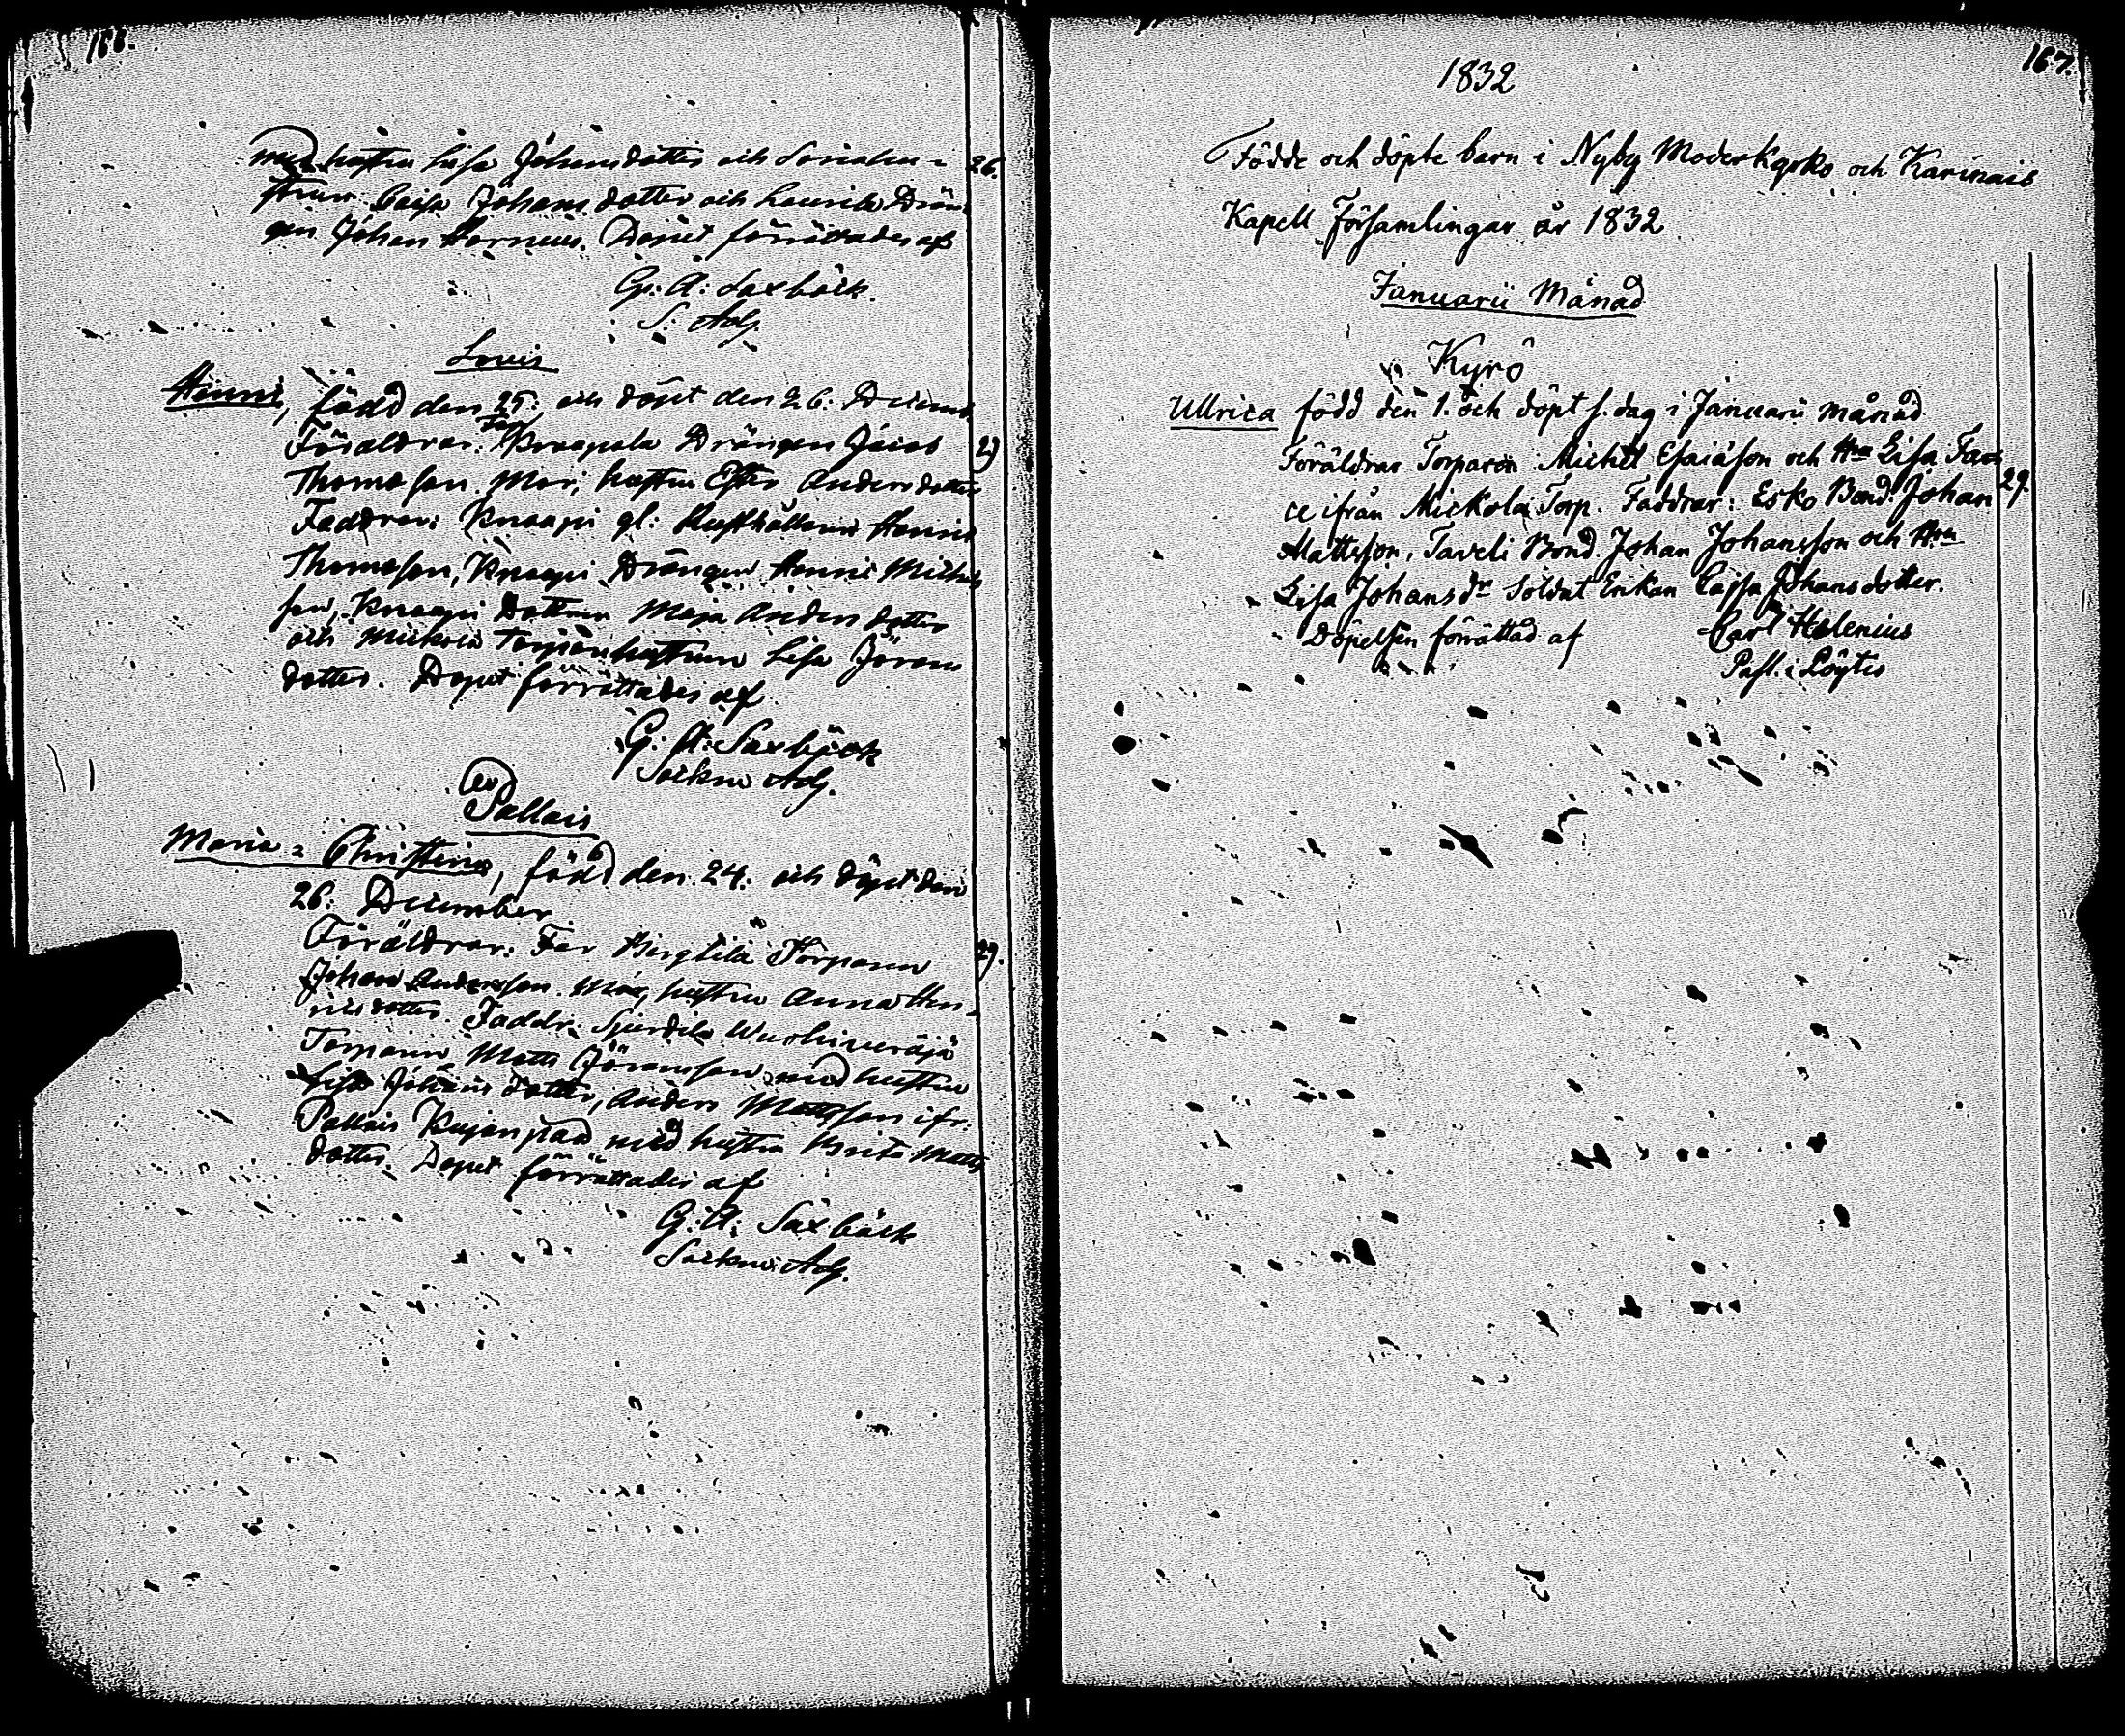 166.
med hustru Lisa Johansdotter och
Caisa Johans dotter och Laurila Drän-
gen Johan Hornius. Dopet förrättades af
G: A: Saxbäck.
S: Adj.
26.
Lovis
Henric, född den 25. och döpt den 26. Decemb.
Föräldrar: Far Knaapila Drängen Jacob
Thomasson Mor; hustru Ester Anders dotter
Faddrar: Knaapi gl: Rusthållaren Henric
Thomasson, Knaapi Drängen Henric Michels
son, Knaapi Dottren Maja Anders dotter
och Mickola Torparehustrun Lisa Jörans
dotter. Dopet förrättades af
G: A: Saxbäck
Sockne Adj.
29
Pallais
Maria = Christina, född den 24. och döpt den
26. December
Föräldrar: Far Torparen
Johan Andersson. Mor, hustru Anna Hen
rics dotter. Faddr:
Torparen Matts Jöransson med hustru
Lisa Johans dotter, Anders Mattsson ifr.
Pallais med hustru Brita Matts
dotter. Dopet förrättades af
G: A: Saxbäck
Sockne Adj.
29.
167.
1832
Födde och döpte barn i Nyby Moderkyrko och Karinais
Kapell Församlingar år 1832
Januarii Månad
Kyrö
Ullrica född den 1. och döpt s. dag i Januarii månad
Föräldrar Torparen Michel Esaiasson och Hru Lisa
ifrån Mickola Torp. Faddrar: Esko Bond. Johan
Mattsson, Taveli Bond. Johan Johansson och Hru
Lisa Johansdr Soldat Enkan Cajsa Johansdotter.
Döpelsen förrättad af Carl Helenius
Past. i Löytis
29.